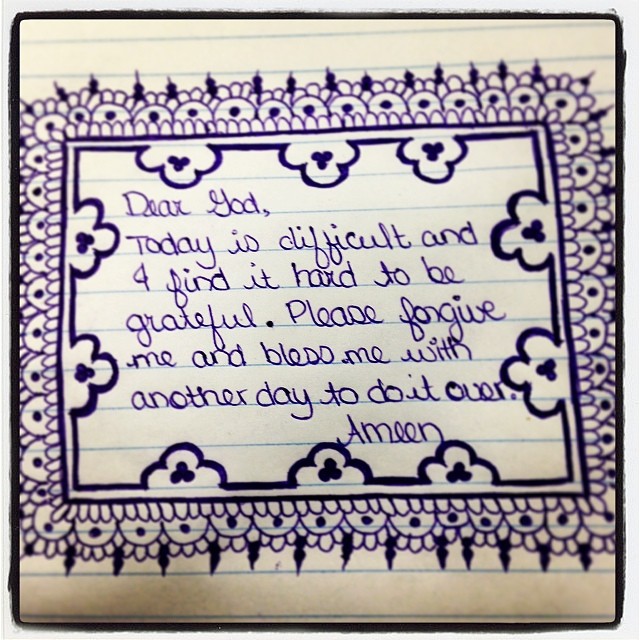 Dear God,
Today is difficult and
I find it hard to be
grateful. Please forgive
me and bless me with
another day to do it over.
Ameen